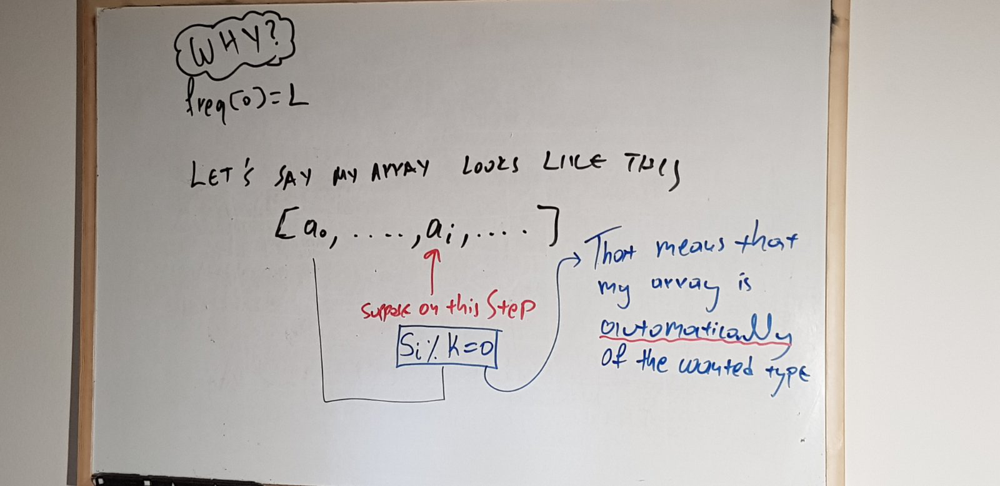 WHY?
freq(0)=1
LET'S SAY MY ARRAY LOOKS LIKE THIS
[a₀, ....,aᵢ,.... ]
suppose on this Step
Sᵢ % K=0
That means that
my array is
automatically
of the wanted type